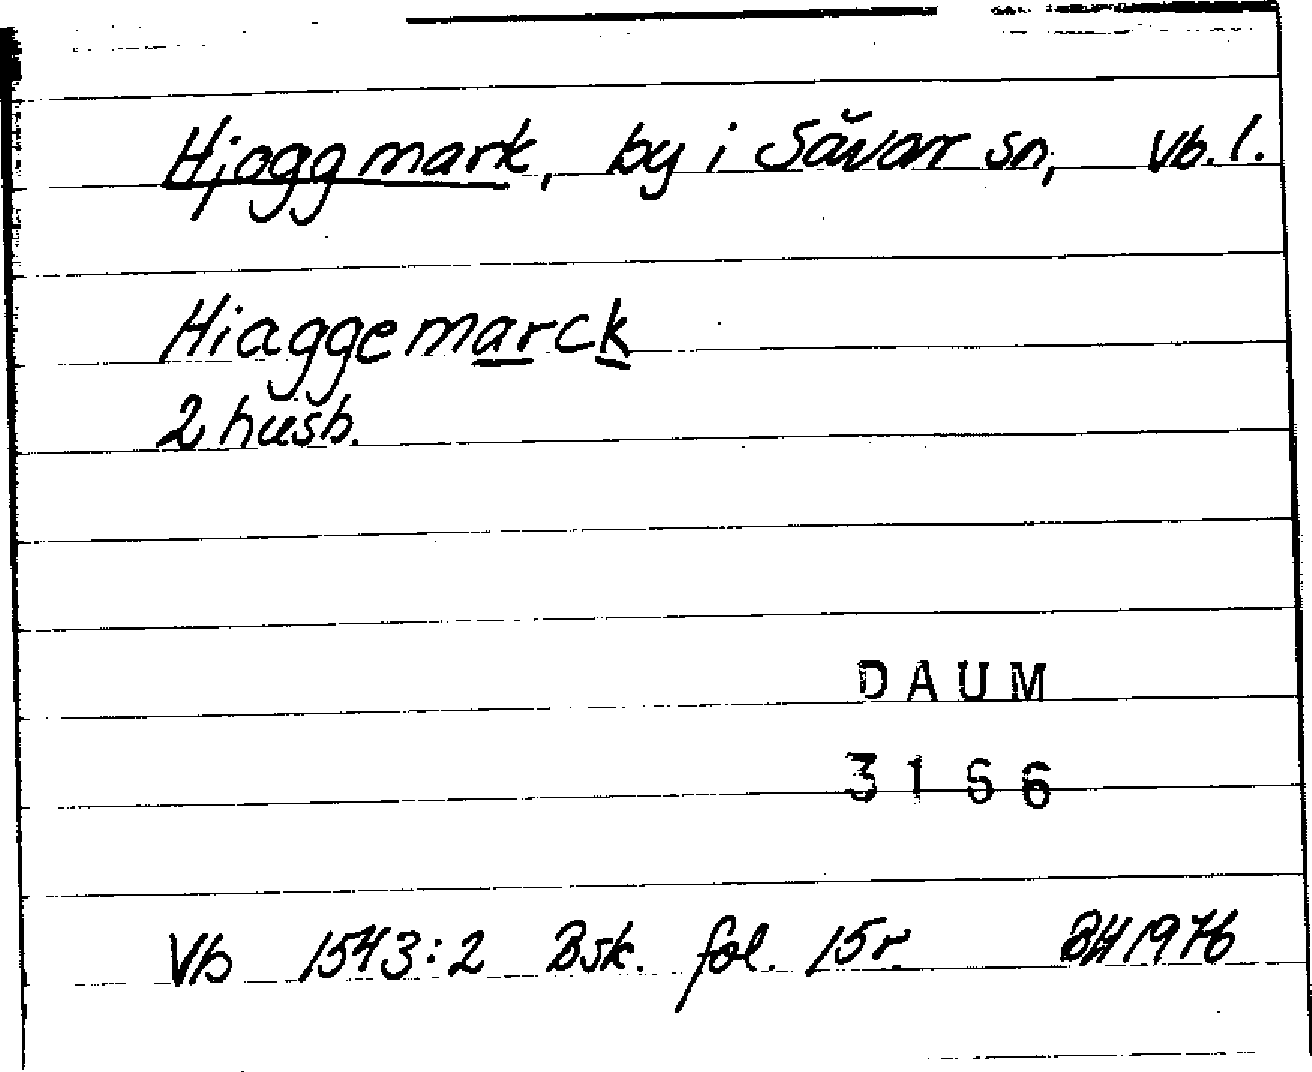 Hjoggmark, by i Sävar sn, Vb. l.
Hiaggemarck
2 husb.
DAUM
3166
Vb 1543:2 Bsk. fol. 15r. BH 1976